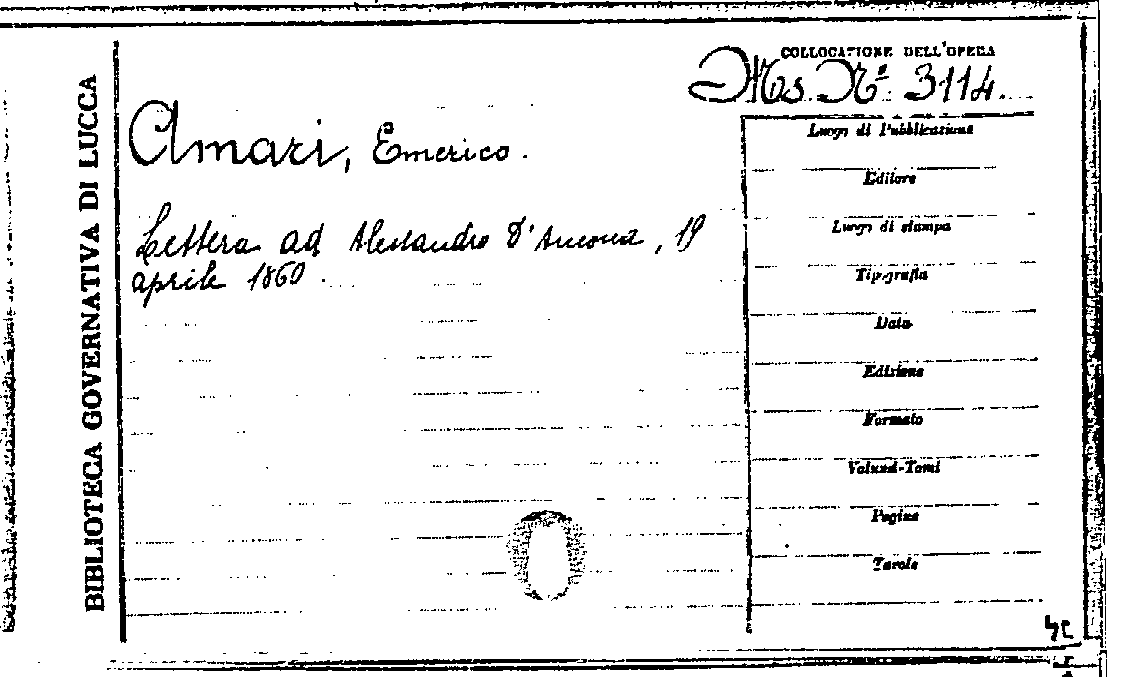 BIBLIOTECA GOVERNATIVA DI LUCCA
COLLOCATIONE DELL'OPERA
Ms. Nº. 3114.
Amari, Emerico.
Lettera ad Alessandro D'Ancona, 19
aprile 1860.
Luogo di Pubblicazione
Editore
Luogo di stampa
Tipografia
Data
Edizione
Formato
Volumi-Tomi
Pagine
Tavole